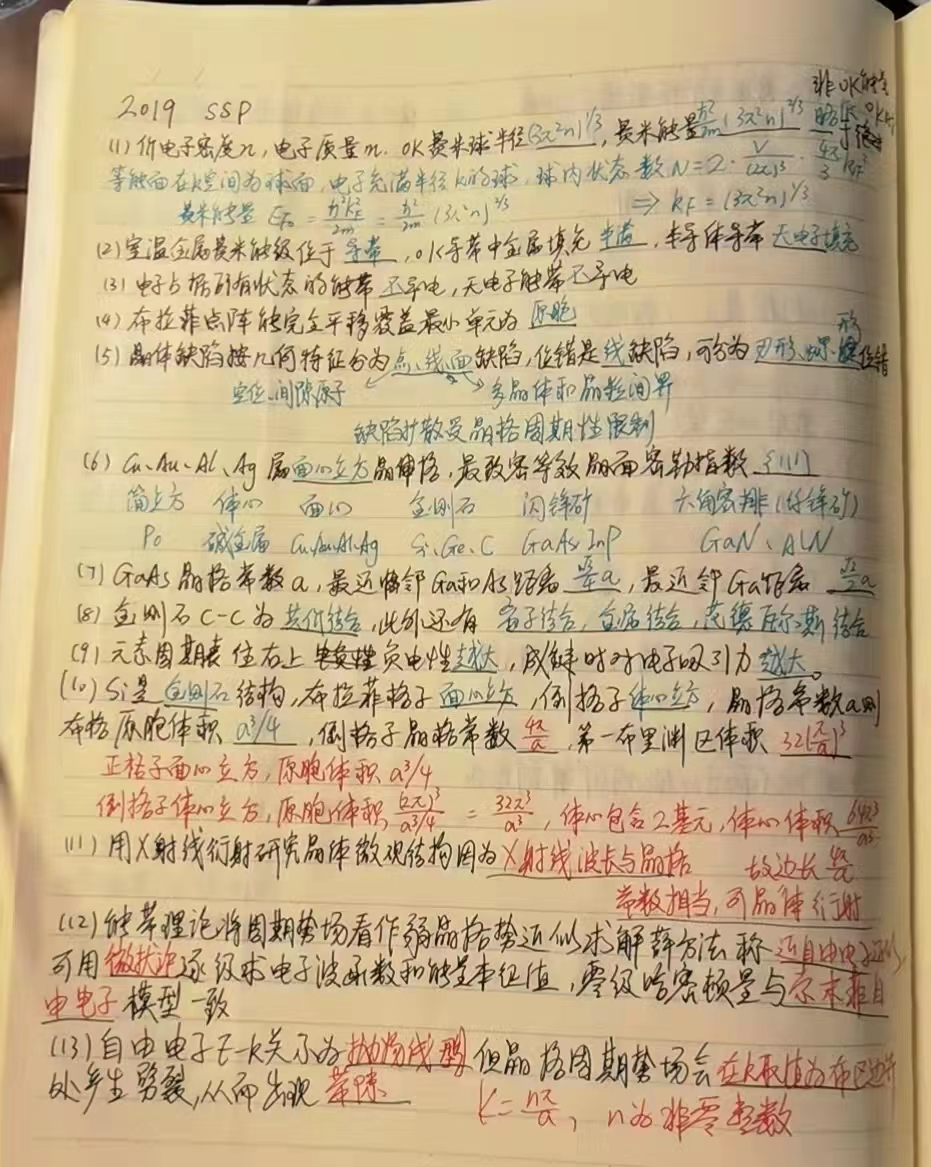 2019 SSP
非0K能量
(1) 价电子密度n,电子质量m. 0K费米球半径(3π²n)^{1/3},费米能量ℏ²/2m (3π²n)^{2/3}
等能面在k空间为球面,电子充满半径k的球,球内状态数N=2·V/(2π)³·4π/3 k_F³
费米能量 E_F₀ = ℏ²k_F²/2m = ℏ²/2m (3π²n)^{2/3} ⇒ k_F = (3π²n)^{1/3}
(2) 室温金属费米能级位于 导带,0K导带中金属填充 半满,半导体导带 无电子填充
(3) 电子占据所有状态的能带 不导电,无电子能带不导电
(4) 布拉菲点阵能完全平移覆盖最小单元为 原胞
(5) 晶体缺陷按几何特征分为点、线、面缺陷,位错是线缺陷,可分为刃形、螺形位错
空位、间隙原子 多晶体和晶粒间界
缺陷扩散受晶格周期性限制
(6) Cu、Au、Al、Ag 属面心立方晶体格,最致密等效晶面密勒指数 {111}
简立方 体心 面心 金刚石 闪锌矿 六角密排(纤锌矿)
Po 碱金属 Cu、Au、Al、Ag Si、Ge、C GaAs、InP GaN、AlN
(7) GaAs晶格常数a,最近临邻Ga和As距离 √3/4 a,最近邻Ga距离 √2/2 a
(8) 金刚石C-C为共价结合,此外还有 离子结合,金属结合,范德瓦尔斯结合
(9) 元素周期表 往右上 负电性越大,成键时对电子吸引力 越大。
(10) Si是 金刚石结构,布拉菲格子 面心立方,倒格子体心立方,晶格常数a则
布格原胞体积 a³/4,倒格子晶格常数 4π/a,第一布里渊区体积 32(π/a)³
正格子面心立方,原胞体积 a³/4
倒格子体心立方,原胞体积 (2π)³/(a³/4) = 32π³/a³,体心包含2基元,体心体积 64π³/a³
(11) 用X射线衍射研究晶体微观结构因为X射线波长与晶格 故边长 4π/a
常数相当,可晶体衍射
(12) 能带理论将周期势场看作弱晶格势近似求解薛方法称 近自由电子近似
可用微扰论逐级求电子波函数和能量本征值,零级哈密顿量与索末菲自
由电子 模型一致
(13) 自由电子E-k关系为抛物线型 但晶格周期势场会在k取值为布区边界
处产生劈裂,从而出现 带隙 k=nπ/a,n为非零整数